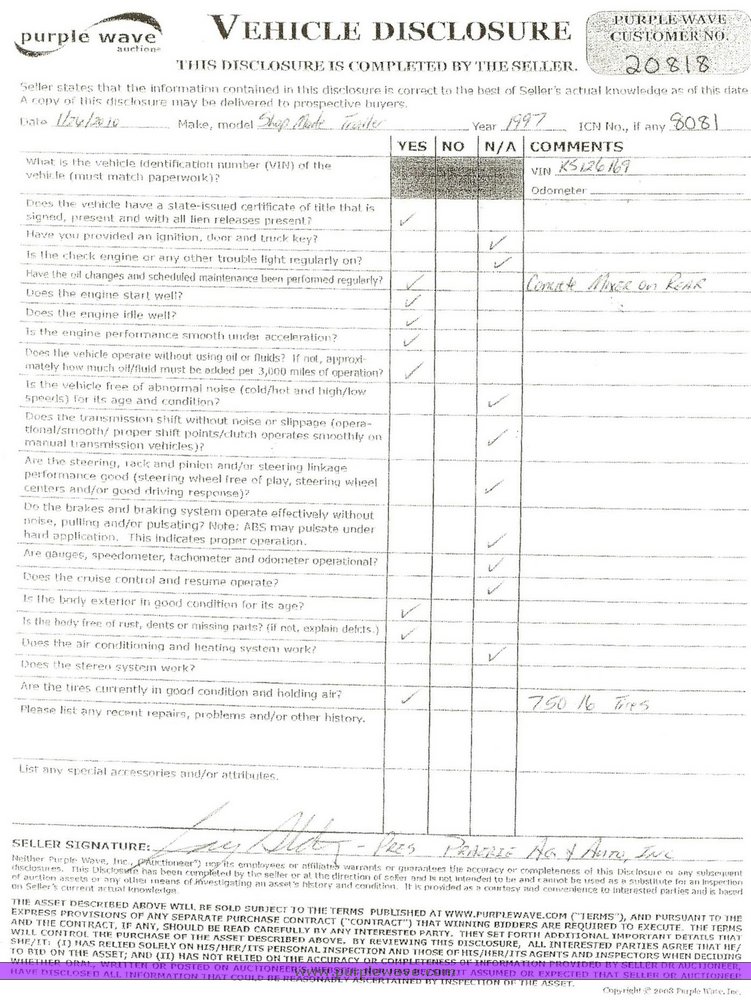 purple wave
auction
VEHICLE DISCLOSURE
PURPLE WAVE
CUSTOMER NO.
20818
THIS DISCLOSURE IS COMPLETED BY THE SELLER.
Seller states that the information contained in this disclosure is correct to the best of Seller's actual knowledge as of this date
A copy of this disclosure may be delivered to prospective buyers.
Date 1/26/2010 Make, model Shop Made Trailer Year 1997 ICN No., if any 8081
YES NO N/A COMMENTS
What is the vehicle identification number (VIN) of the
vehicle (must match paperwork)?
VIN KS126169
Odometer
Does the vehicle have a state-issued certificate of title that is
signed, present and with all lien releases present? ✓
Have you provided an ignition, door and truck key? ✓
Is the check engine or any other trouble light regularly on? ✓
Have the oil changes and scheduled maintenance been performed regularly? ✓ Concrete Mixer on Rear
Does the engine start well? ✓
Does the engine idle well? ✓
Is the engine performance smooth under acceleration? ✓
Does the vehicle operate without using oil or fluids? If not, approxi-
mately how much oil/fluid must be added per 3,000 miles of operation? ✓
Is the vehicle free of abnormal noise (cold/hot and high/low
speeds) for its age and condition? ✓
Does the transmission shift without noise or slippage (opera-
tional/smooth/ proper shift points/clutch operates smoothly on
manual transmission vehicles)? ✓
Are the steering, rack and pinion and/or steering linkage
performance good (steering wheel free of play, steering wheel
centers and/or good driving response)? ✓
Do the brakes and braking system operate effectively without
noise, pulling and/or pulsating? Note: ABS may pulsate under
hard application. This indicates proper operation. ✓
Are gauges, speedometer, tachometer and odometer operational? ✓
Does the cruise control and resume operate? ✓
Is the body exterior in good condition for its age? ✓
Is the body free of rust, dents or missing parts? (if not, explain defcts.) ✓
Does the air conditioning and heating system work? ✓
Does the stereo system work?
Are the tires currently in good condition and holding air? ✓ 750 16 Tires
Please list any recent repairs, problems and/or other history.
List any special accessories and/or attributes.
SELLER SIGNATURE: - Pres Prairie Ag & Auto, Inc
Neither Purple Wave, Inc., ("Auctioneer") nor its employees or affiliates warrants or guarantees the accuracy or completeness of this Disclosure or any subsequent
disclosures. This Disclosure has been completed by the seller or at the direction of seller and is not intended to be and cannot be used as a substitute for an inspection
of auction assets or any other means of investigating an asset's history and condition. It is provided as a courtesy and convenience to interested parties and is based
on Seller's current actual knowledge.
THE ASSET DESCRIBED ABOVE WILL BE SOLD SUBJECT TO THE TERMS PUBLISHED AT WWW.PURPLEWAVE.COM ("TERMS"), AND PURSUANT TO THE
EXPRESS PROVISIONS OF ANY SEPARATE PURCHASE CONTRACT ("CONTRACT") THAT WINNING BIDDERS ARE REQUIRED TO EXECUTE. THE TERMS
AND THE CONTRACT, IF ANY, SHOULD BE READ CAREFULLY BY ANY INTERESTED PARTY. THEY SET FORTH ADDITIONAL IMPORTANT DETAILS THAT
WILL CONTROL THE PURCHASE OF THE ASSET DESCRIBED ABOVE. BY REVIEWING THIS DISCLOSURE, ALL INTERESTED PARTIES AGREE THAT HE/
SHE/IT: (I) HAS RELIED SOLELY ON HIS/HER/ITS PERSONAL INSPECTION AND THOSE OF HIS/HER/ITS AGENTS AND INSPECTORS WHEN DECIDING
TO BID ON THE ASSET; AND (II) HAS NOT RELIED ON THE ACCURACY OR COMPLETENESS OF INFORMATION PROVIDED BY SELLER OR AUCTIONEER,
WHETHER ORAL, WRITTEN OR POSTED ON AUCTIONEER'S ASSUMED OR EXPECTED THAT SELLER OR AUCTIONEER
www.purplewave.com
HAVE DISCLOSED ALL INFORMATION THAT COULD BE REASONABLY ASCERTAINED BY INSPECTION OF THE ASSET.
Copyright © 2008 Purple Wave, Inc.